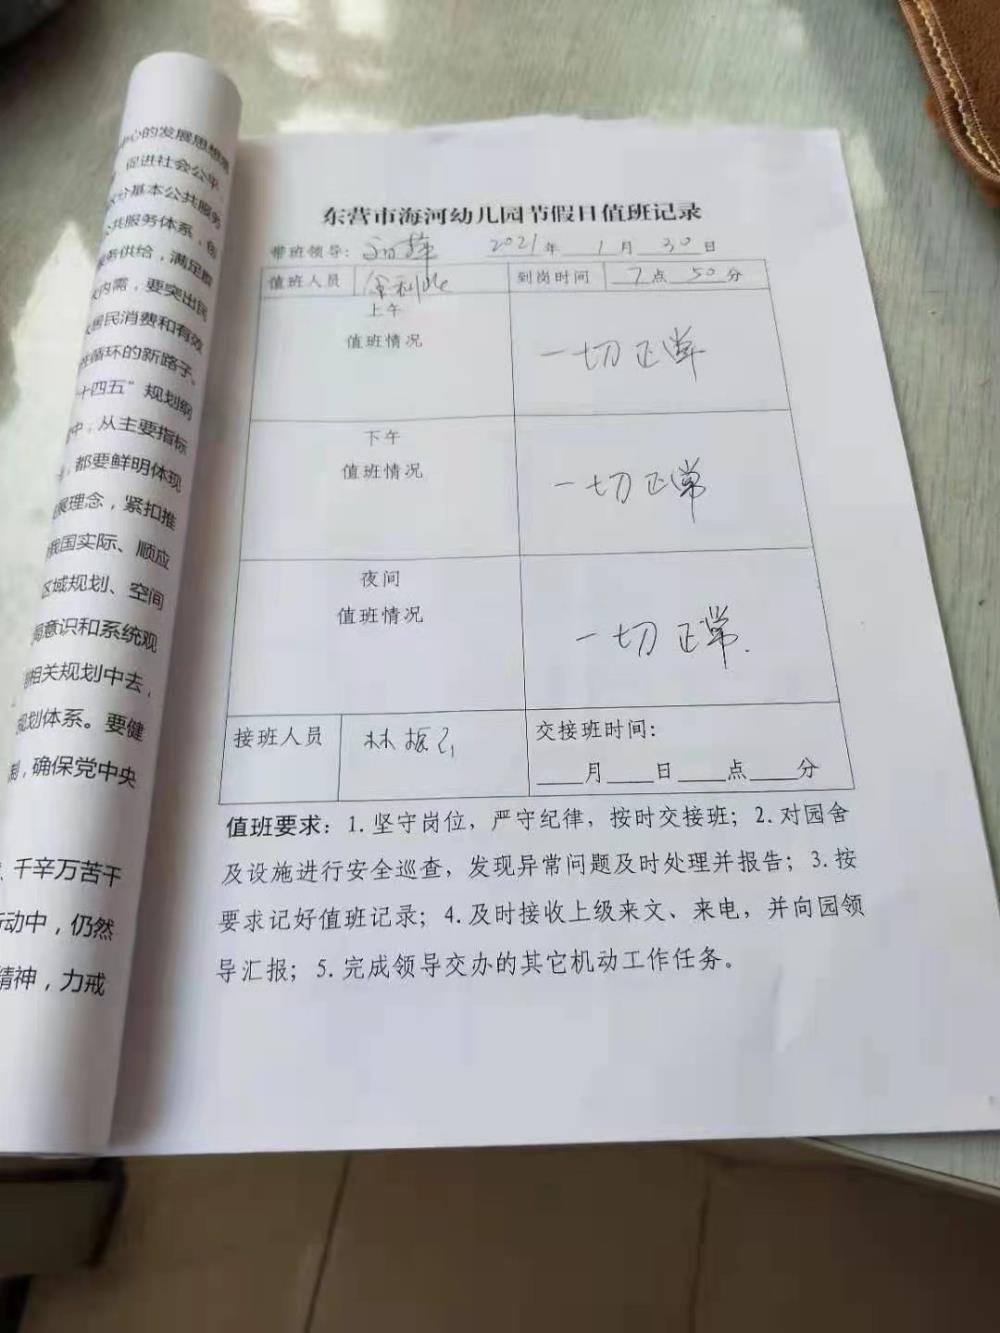 中心的发展思想
促进社会公平
分基本公共服务
共服务体系，创
务供给，满足
内需，要突出民
居民消费和有效
性循环的新路子。
十四五”规划纲
中，从主要指标
，都要鲜明体现
展理念，紧扣推
我国实际、顺应
区域规划、空间
局意识和系统观
相关规划中去，
规划体系。要健
制，确保党中央
千辛万苦干
行动中，仍然
精神，力戒
东营市海河幼儿园节假日值班记录
带班领导： 2021年 1月 30日
值班人员 到岗时间 7点 50分
上午
值班情况 一切正常
下午
值班情况 一切正常
夜间
值班情况 一切正常.
接班人员 林振 交接班时间：
月 日 点 分
值班要求：1.坚守岗位，严守纪律，按时交接班；2.对园舍
及设施进行安全巡查，发现异常问题及时处理并报告；3.按
要求记好值班记录；4.及时接收上级来文、来电，并向园领
导汇报；5.完成领导交办的其它机动工作任务。